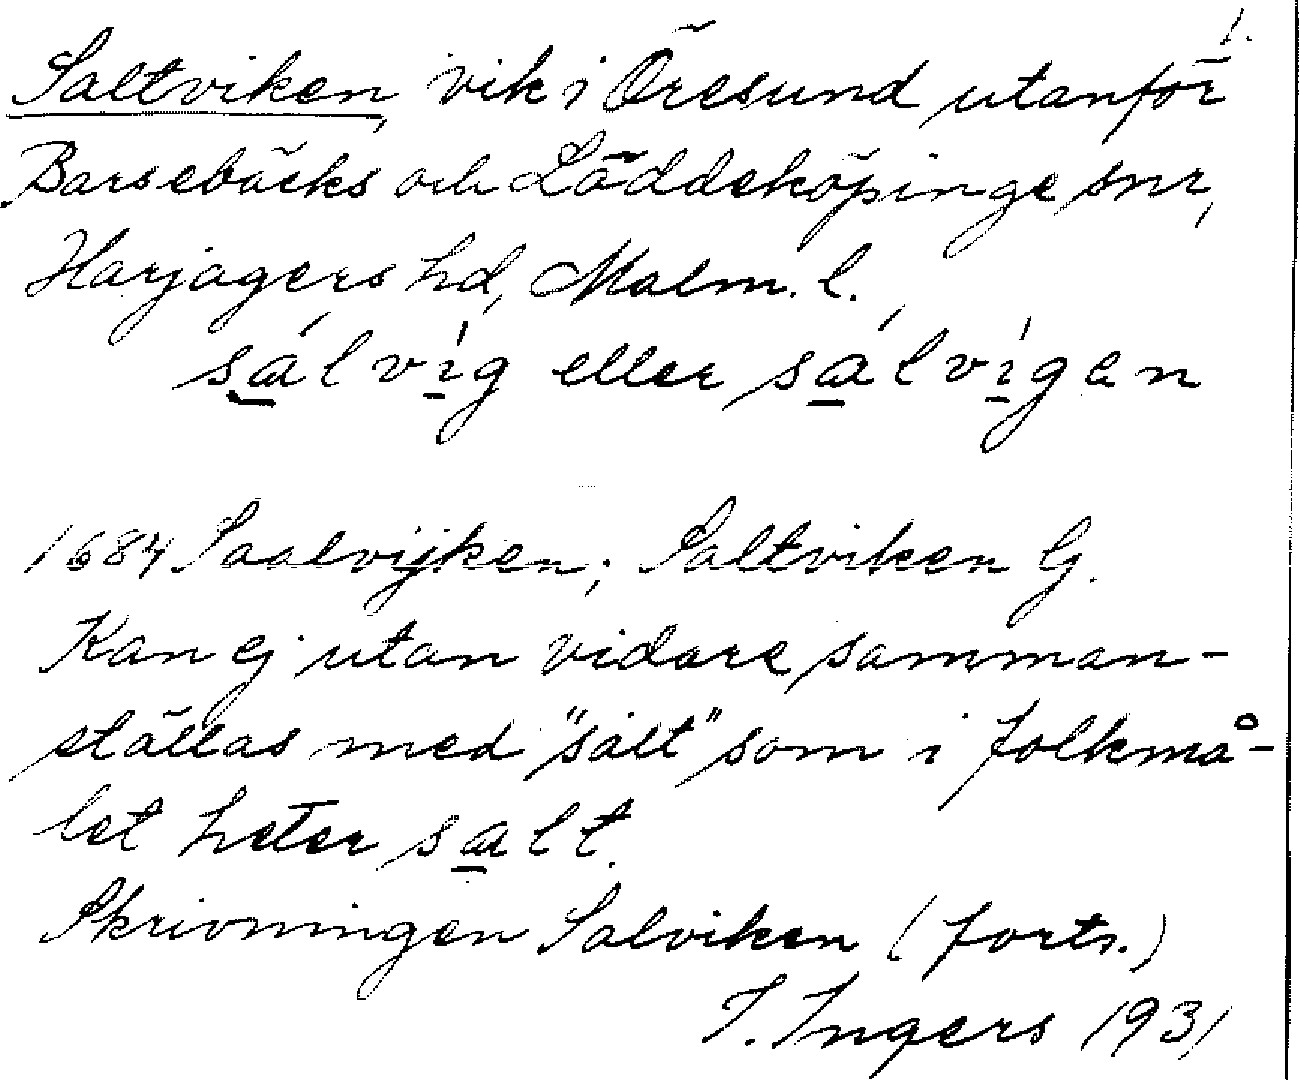 1.
Saltviken, vik i Öresund utanför
Barsebäcks och Löddeköpinge snr,
Harjagers hd, Malm. l.
sálvíg eller sálvígen
1684 Saalvijken; Saltviken G.
Kan ej utan vidare samman-
ställas med "salt" som i folkmå-
let heter salt.
Skrivningen Salviken (forts.)
I. Ingers 1931